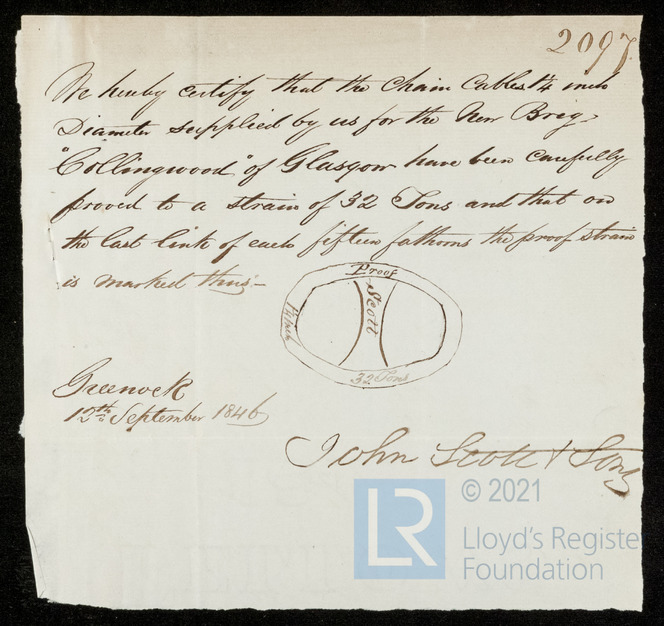 2097
We hereby certify that the Chain Cables 1¼ inch
Diameter supplied by us for the New Brig
"Collingwood" of Glasgow have been carefully
proved to a strain of 32 Tons and that on
the last link of each fifteen fathoms the proof strain
is marked thus—
Proof
Scott
32 Tons
Greenock
12th September 1846
John Scott & Sons
LR
© 2021
Lloyd's Registe
Foundation